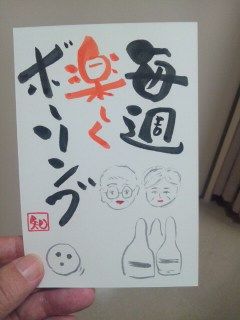 毎週
楽しく
ボーリング